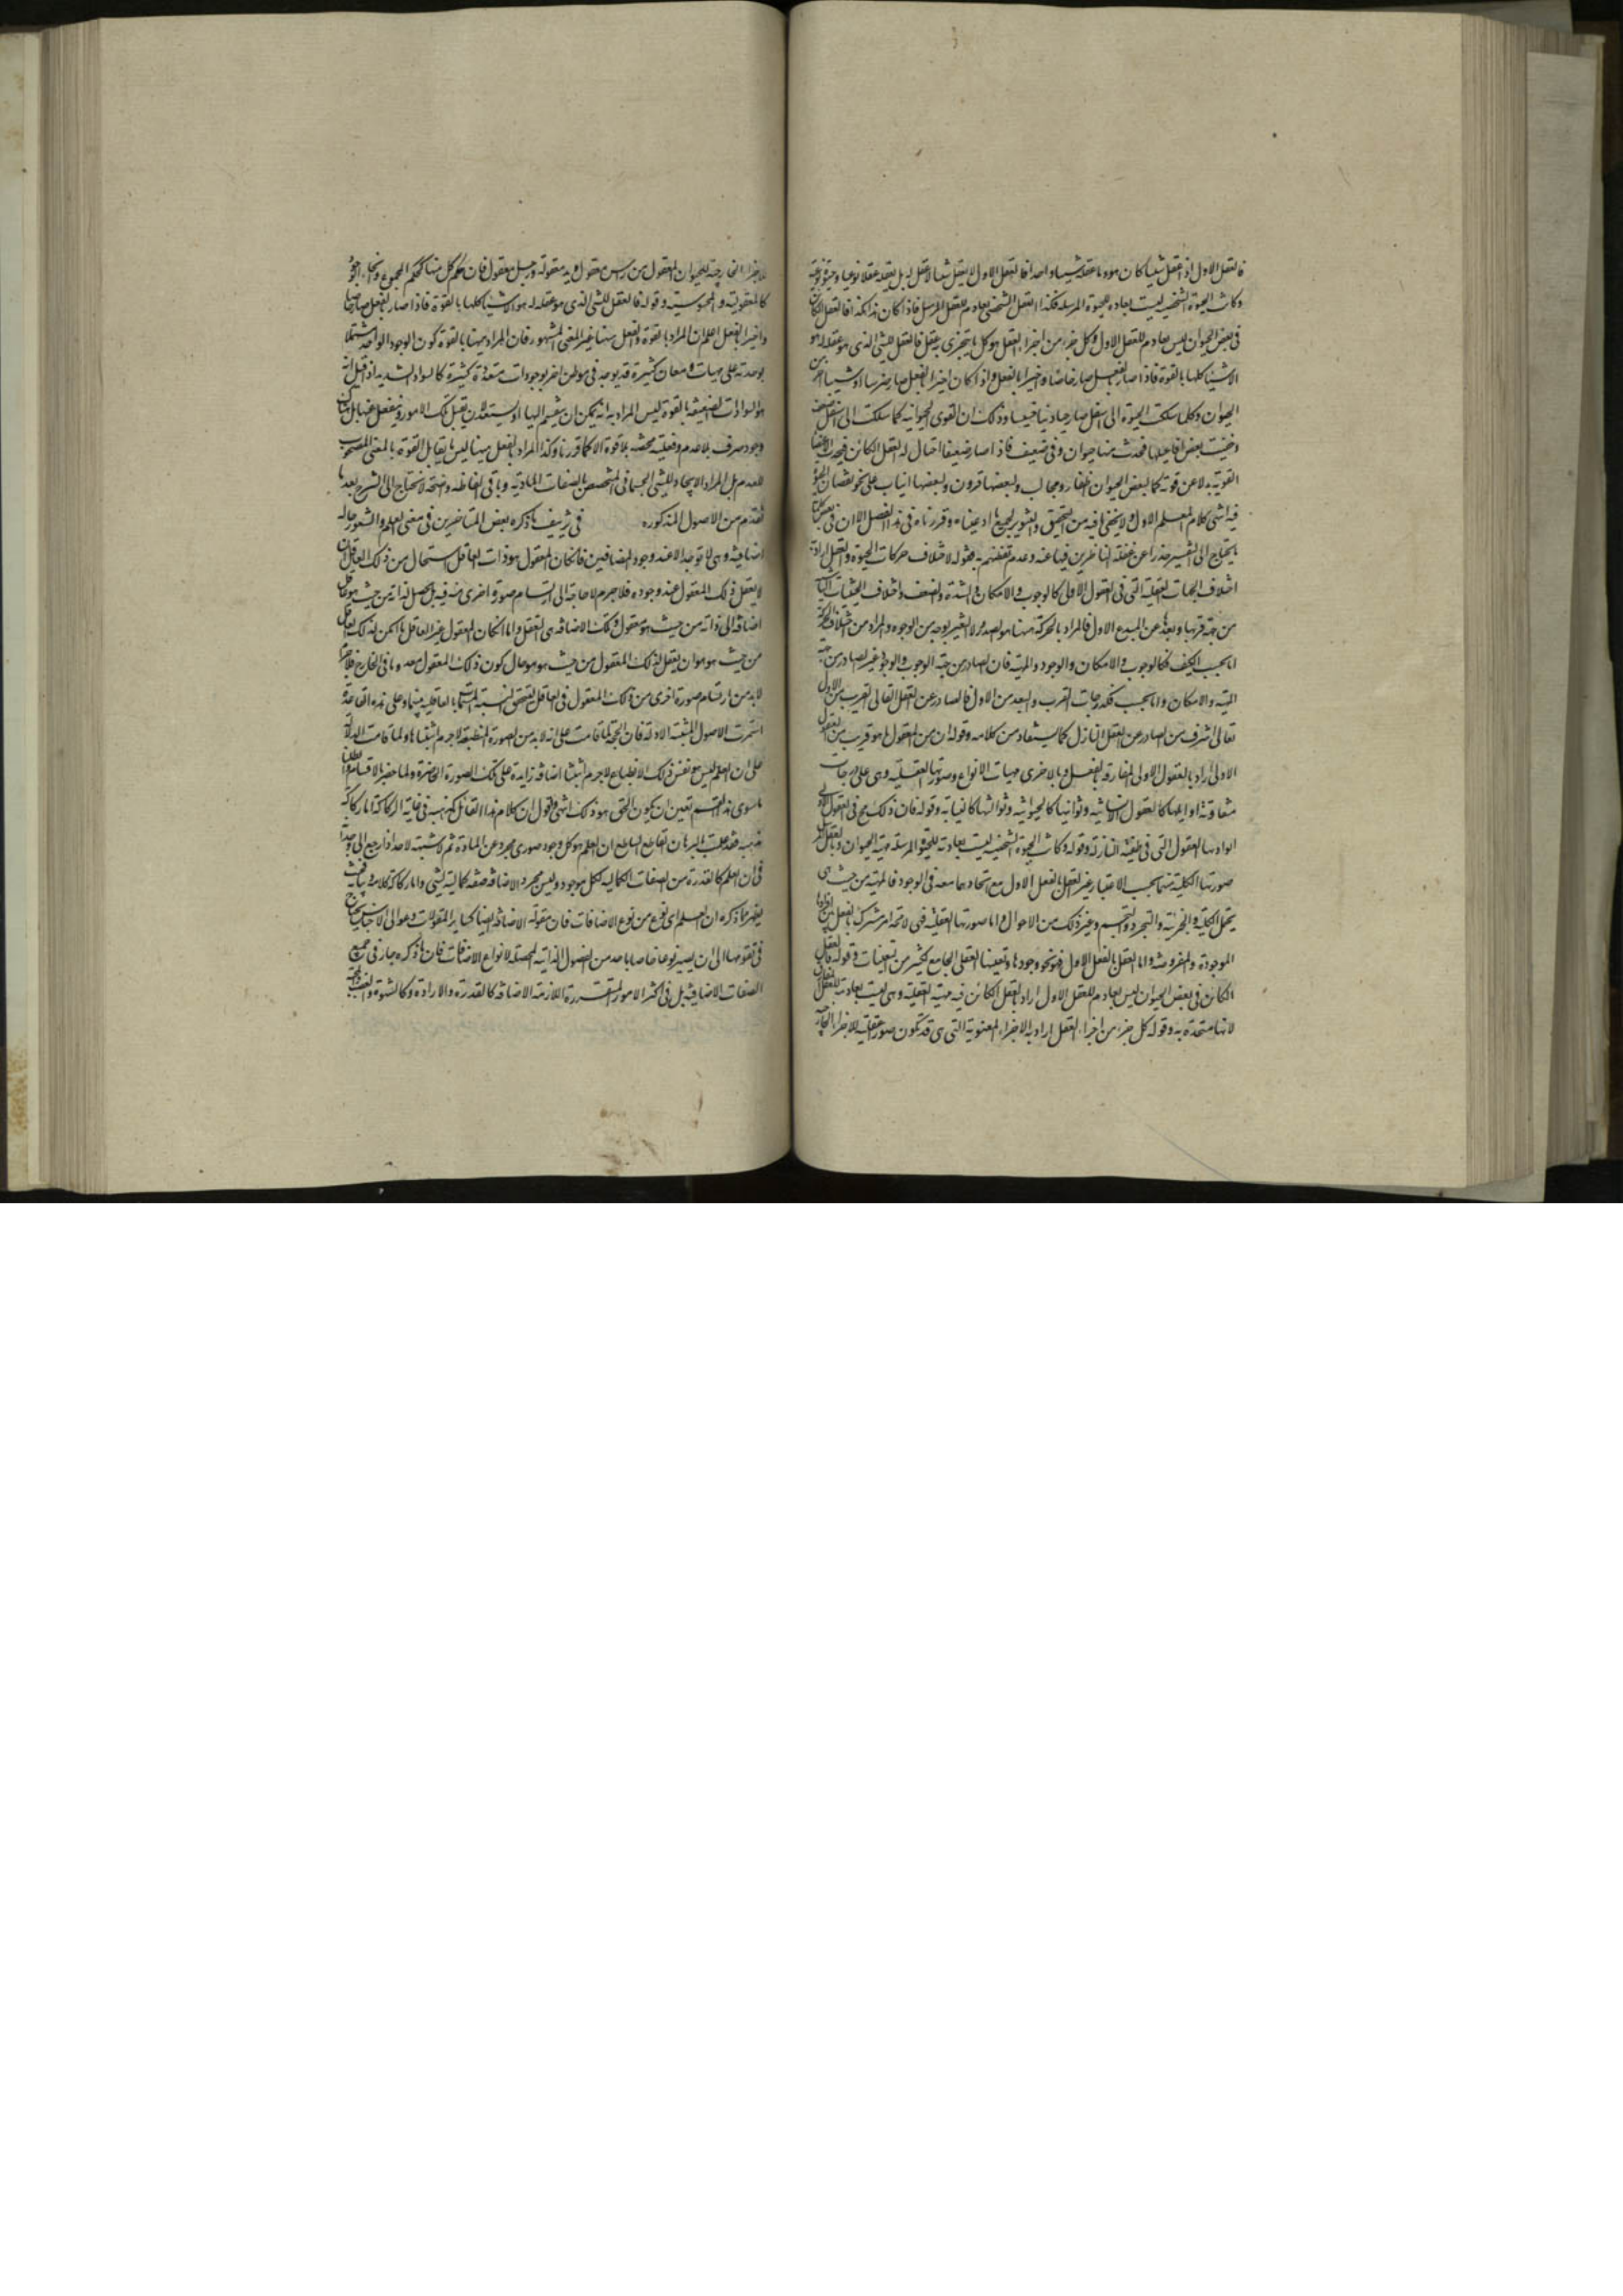 فالعقل الاول اذا عقل شيئا كان هو وما عقله شيئا واحدا فالعقل الاول لا يعقل شيئا لا عقل له بل يعقله عقلا نوعيا وحيوة نوعية
وكانت الحيوة الشخصية ليست بعادمة للحيوة المرسلة فكذا العقل الشخصى ليس بعادم للعقل المرسل فاذا كان هذا هكذا فالعقل الكائن
فى بعض الحيوان ليس بعادم للعقل الاول وكل جزء من اجزاء العقل هو كل ما يتجزى به عقل فالعقل للشئ الذى هو عقل له هو
الاشياء كلها بالقوة فاذا صار بالفعل صار خاصا واخيرا بالفعل واذا كان اخيرا بالفعل صار فرسا او شيئا اخر من
الحيوان وكلما سلكت الحيوة الى اسفل صار حيا دنيا خسيسا وذلك ان القوى الحيوانية كلما سلكت الى اسفل ضعفت
وخفيت بعض افاعيلها فحدث منها حيوان دنى ضعيف فاذا صار ضعيفا احتال له العقل الكائن فيحدث الاعضاء
القوية بدلا عن قوته كما لبعض الحيوان اظفار ومخالب ولبعضها قرون ولبعضها انياب على نحو نقصان الحيوة
فيه انتهى كلام المعلم الاول ولا يخفى ما فيه من التحقيق والتنوير لجميع ما ادعيناه وقررناه فى هذا الفصل الا ان فى بعض كلماته
ما يحتاج الى التفسير حذرا عن غفلة الناظرين فيها عنه وعدم تفطنهم به فقوله لاختلاف حركات الحيوة والعقل اراد به
اختلاف الجهات العقلية التى فى العقول الاولى كالوجوب والامكان والشدة والضعف واختلاف الحيثيات
من جهة قربها وبعدها عن المبدع الاول فالمراد بالحركة ههنا هو الصدور لا التغير بوجه من الوجوه والمراد من اختلاف الحركة
اما بحسب الكيف فكالوجوب والامكان والوجود والمهية فان الصادر من جهة الوجوب والوجود غير الصادر من جهة
المهية والامكان واما بحسب فكدرجات القرب والبعد من الاول فالصادر عن العقل العالى القريب من الاول
تعالى اشرف من الصادر عن العقل النازل كما يستفاد من كلامه وقوله ان من العقول ما هو قريب من العقول
الاولى اراد بالعقول الاولى المفارقة بالفعل وبالاخرى مهيات الانواع وصورتها العقلية وهى على درجات
متفاوتة اوايلها كالعقول الانسانية وثوانيها كالحيوانية وثوالثها كالنباتية وقوله فان ذلك يصح فى العقول الاولى
اراد بها العقول التى فى الطبقة النازلة وقوله وكانت الحيوة الشخصية ليست بعادمة للحيوة المرسلة مهية الحيوان وبالعقل
صورتها الكلية منهما بحسب الاعتبار غير العقل بالفعل الاول مع اتحادهما معه فى الوجود فالمهية من حيث هى
يحتمل الكلية والجزئية والتجرد والتجسم وغير ذلك من الاحوال واما صورتها العقلية فهى لا محالة امر مشترك بالفعل بين افرادها
الموجودة والمفروضة واما العقل بالفعل الاول فهو نحو وجودها وتعينها العقلى الجامع لكثير من التعينات وقوله فالعقل
الكائن فى بعض الحيوان ليس بعادم للعقل الاول اراد بالعقل الكائن فيه مهيته العقلية وهى ليست بعادمة للعقل
لانها متحدة به وقوله كل جزء من اجزاء العقل اراد به الاجزاء المعنوية التى هى قد تكون صور عقلية للاجزاء الخارجية
للاجزاء الخارجية للحيوان المعقول من راس معقول ويد معقولة ورجل معقول فان حكم كل منها كحكم المجموع
كالمعقولية والمحسوسية وقوله فالعقل للشئ الذى هو عقل له هو الاشياء كلها بالقوة فاذا صار بالفعل صار خاصا
واخيرا بالفعل اعلم ان المراد بالقوة والفعل ههنا غير المعنى المشهور فان المراد ههنا بالقوة كون الوجود الواحد مشتملا
بوحدته على مهيات ومعان كثيرة قد يوجد فى موطن اخر بوجودات متعددة كثيرة كالسواد الشديد اذا قيل انه
هو السوادات الضعيفة بالقوة ليس المراد به انه يمكن ان ينقسم اليها او يستعد لان يقبل تلك الامور وينفعل عنها بل هناك
وجود صرف بلا عدم وفعلية محضة بلا قوة الا كما قررنا وكذا المراد بالفعل ههنا ليس ما يقابل القوة بالمعنى المصحوب
للعدم بل المراد الايجاد للشئ الجسمانى المتخصص بالصفات المادية وباقى الفاظه واضحة لا تحتاج الى الشرح بعد ما
تقدم من الاصول المذكورة فى تزييف ما ذكره بعض المتاخرين فى معنى العلم والشعور حاله
اضافية وهى لا توجد الا عند وجود المضافين فان كان المعقول هو ذات العاقل استحال من ذلك العاقل ان
لا يعقل ذلك المعقول عند وجوده فلا جرم لا حاجة الى ارتسام صورة اخرى منه فيه بل يحصل لذاته من حيث هو عاقل
اضافة الى ذاته من حيث هو معقول وتلك الاضافة هى التعقل واما ان كان المعقول غير العاقل امكن لذلك العاقل
من حيث هو هو ان يعقل ذلك المعقول من حيث هو هو حال كون ذلك المعقول معدوما فى الخارج فلا جرم
لا بد من ارتسام صورة اخرى من ذلك المعقول فى العاقل لتحقق النسبة المسماة بالعاقلية بينهما وعلى هذه القاعدة
استمرت الاصول المثبتة الادلة فان الحجة لما قامت على انه لا بد من الصورة المنطبعة لا جرم اثبتناها ولما قامت الدلالة
على ان العلم ليس هو نفس ذلك الانطباع لا جرم اثبتنا اضافة زايدة على تلك الصورة الحاضرة ولما حضرنا الاقسام وابطلنا
ما سوى هذا القسم تعين ان يكون الحق هو ذلك انتهى واقول ان كلام هذا القائل كمذهبه فى غاية الركاكة اما ركاكة
مذهبه فقد علمت بالبرهان القاطع الساطع ان العلم هو كل وجود صورى مجرد عن المادة ثم لا شبهة لاحد اذا رجع الى وجدانه
فى ان العلم كالقدرة من الصفات الكمالية لكل موجود وليس مجرد الاضافة صفة كمالية لشئ واما ركاكة كلامه وبيانه فحيث
يظهر مما ذكره ان العلم اى نوع من نوع الاضافات فان مقولة الاضافة ايضا كساير المقولات وعوالى الاجناس يحتاج
فى تقومها الى ان يصير نوعا خاصا باحد من الفصول الذاتية المحصلة لانواع الاضافات فان ما ذكره جار فى جميع
الصفات الاضافية بل فى اكثر الامور المتقررة اللازمة الاضافة كالقدرة والارادة وكالشهوة والغضب